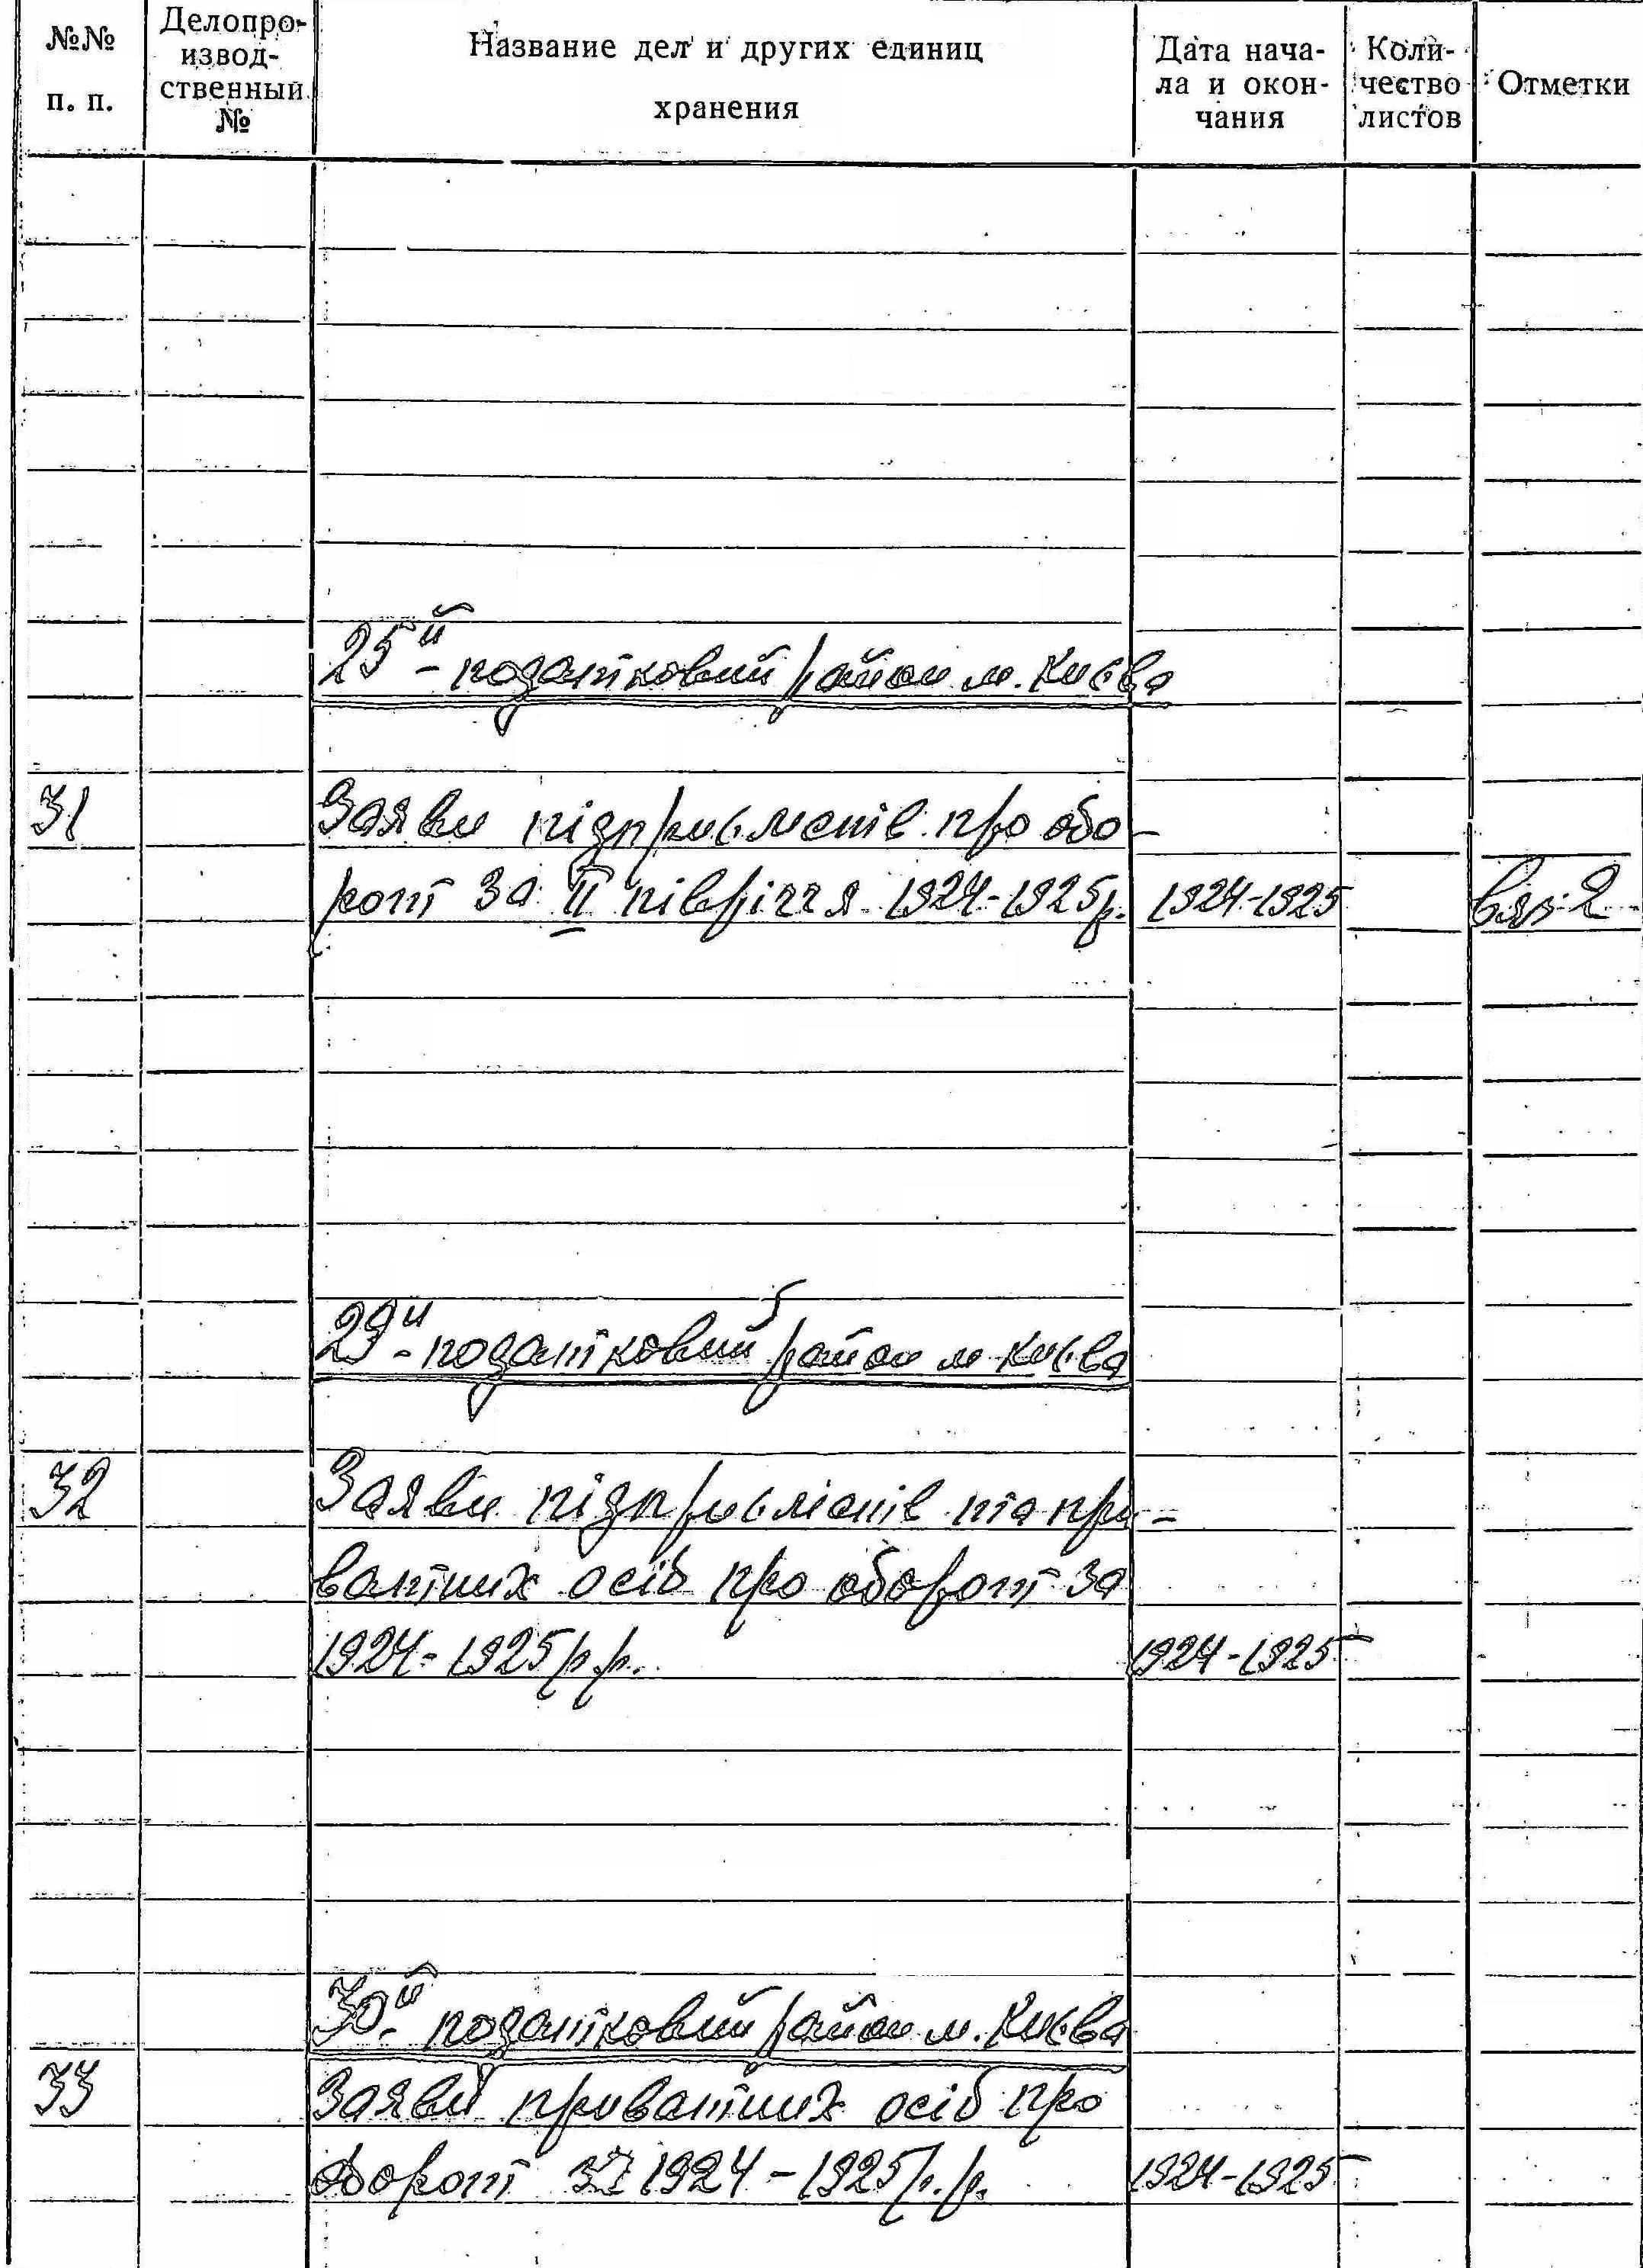 №№ п. п.
Делопро-
извод-
ственный
№
Название дел и других единиц
хранения
Дата нача-
ла и окон-
чания
Коли-
чество
листов
Отметки
25й - податковий район м. Києва
31 Заяви підприємств про обо-
рот за II півріччя 1924-1925р. 1924-1925 вяз. 2
29й - податковий район м. Києва
32 Заяви підприємств та при-
ватних осіб про оборот за
1924-1925 р.р. 1924-1925
30й податковий район м. Києва
33 Заяви приватних осіб про
оборот за 1924-1925 р.р. 1924-1925